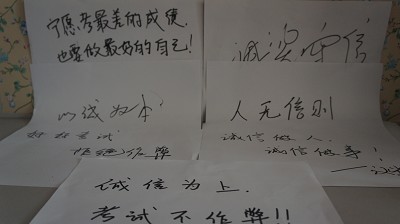 宁愿考最差的成绩
也要做最好的自己!
诚实守信
以诚为本
好好考试
拒绝作弊
人无信则
诚信做人
诚信做事!
诚信为上.
考试不作弊!!